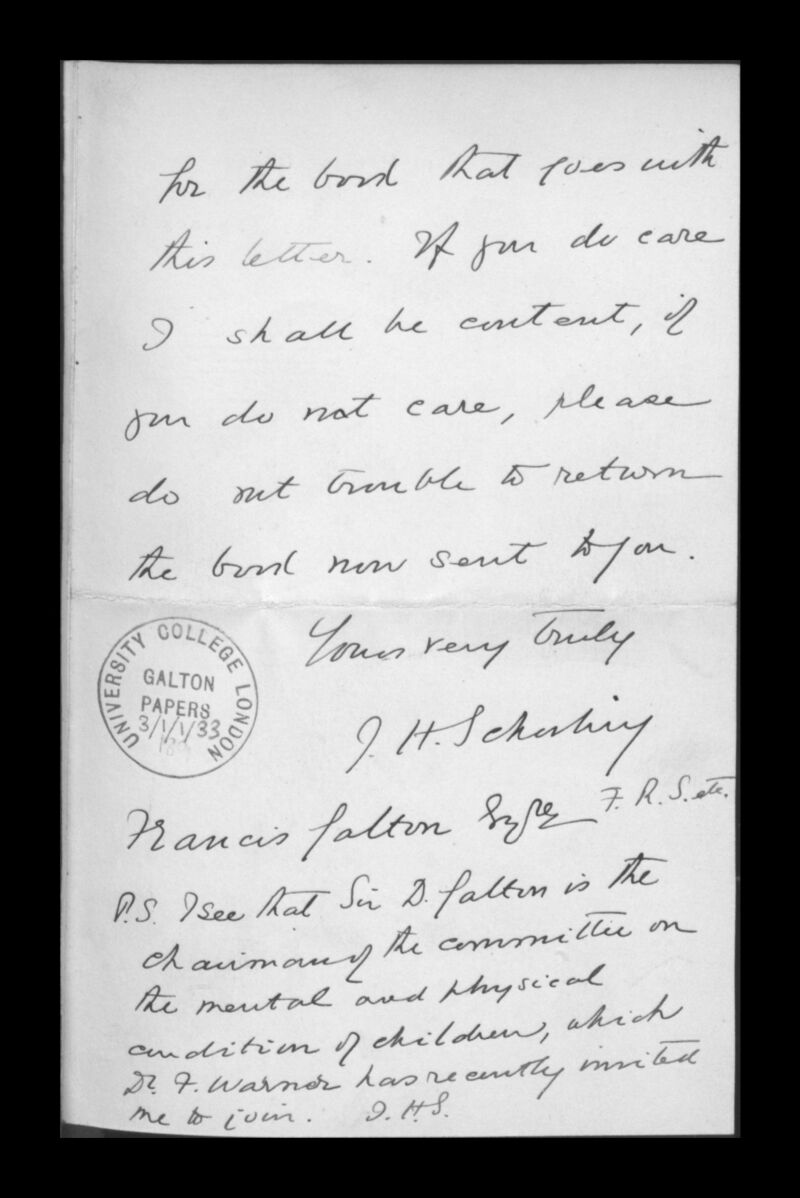 for the book that goes with
this letter. If you do care
I shall be content, if
you do not care, please
do not trouble to return
the book now sent to you.
Yours very truly
J. H. Schooling
UNIVERSITY COLLEGE LONDON
GALTON
PAPERS
3/1/1/33
Francis Galton Esqre F.R.S. etc.
P.S. I see that Sir D. Galton is the
chairman of the committee on
the mental and physical
condition of children, which
Dr. F. Warner has recently invited
me to join. J.H.S.